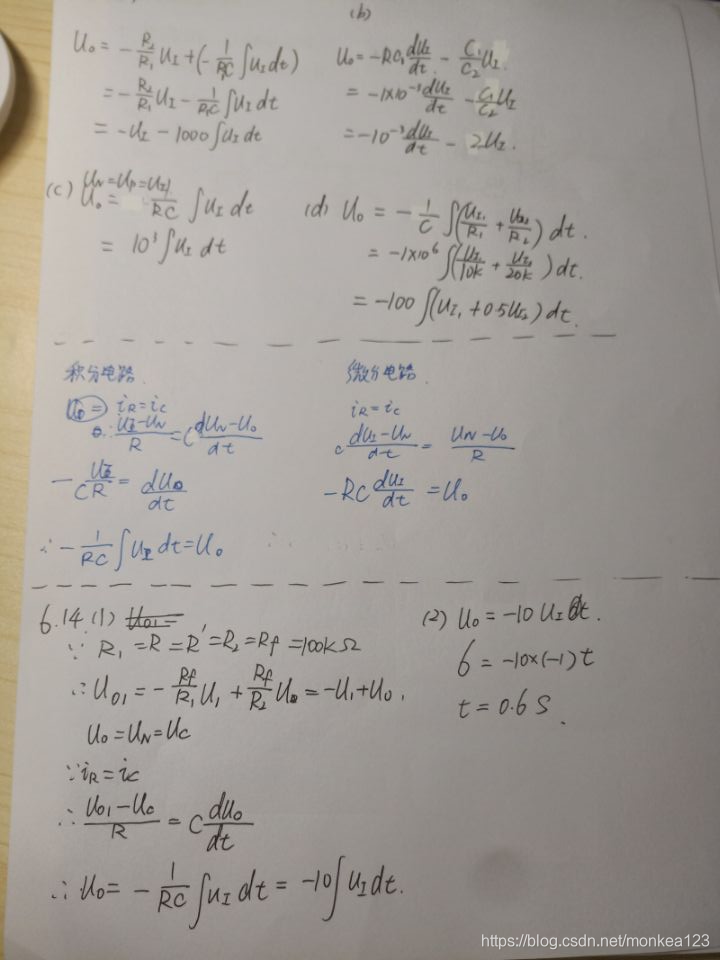 U₀ = -R₂/R₁ U_I + (-1/RC ∫u_I dt)
= -R₂/R₁ U_I - 1/R₁C ∫u_I dt
= -U_I - 1000 ∫u_I dt
(b)
U₀ = -RC₁ dU_I/dt - C₁/C₂ U_I
= -1×10⁻³ dU_I/dt - C₁/C₂ U_I
= -10⁻³ dU_I/dt - 2U_I.
(c) U_N=U_P=U_I/
U₀ = 1/RC ∫u_I dt
= 10³ ∫u_I dt
(d) U₀ = -1/C ∫(U_I₁/R₁ + U_I₂/R₂) dt.
= -1×10⁶ ∫(U_I₁/10k + U_I₂/20k) dt.
= -100 ∫(U_I₁ + 0.5U_I₂) dt.
积分电路.
U₀ = i_R=i_C
∴ (U_I-U_N)/R = C dU_N-U₀/dt
-U_I/CR = dU₀/dt
∴ -1/RC ∫U_I dt = U₀
微分电路.
i_R=i_C
C dU_I-U_N/dt = (U_N-U₀)/R
-RC dU_I/dt = U₀
6.14 (1) U₀₁=
∵ R₁=R=R'=R₂=Rf=100kΩ
∴ U₀₁ = -Rf/R₁ U₁ + Rf/R₂ U₀ = -U₁+U₀.
U₀=U_N=U_C
∵ i_R=i_C
∴ (U₀₁-U₀)/R = C dU₀/dt
∴ U₀ = -1/RC ∫u_I dt = -10∫u_I dt.
(2) U₀ = -10 U_I t.
6 = -10×(-1) t
t = 0.6 S.
https://blog.csdn.net/monkea123